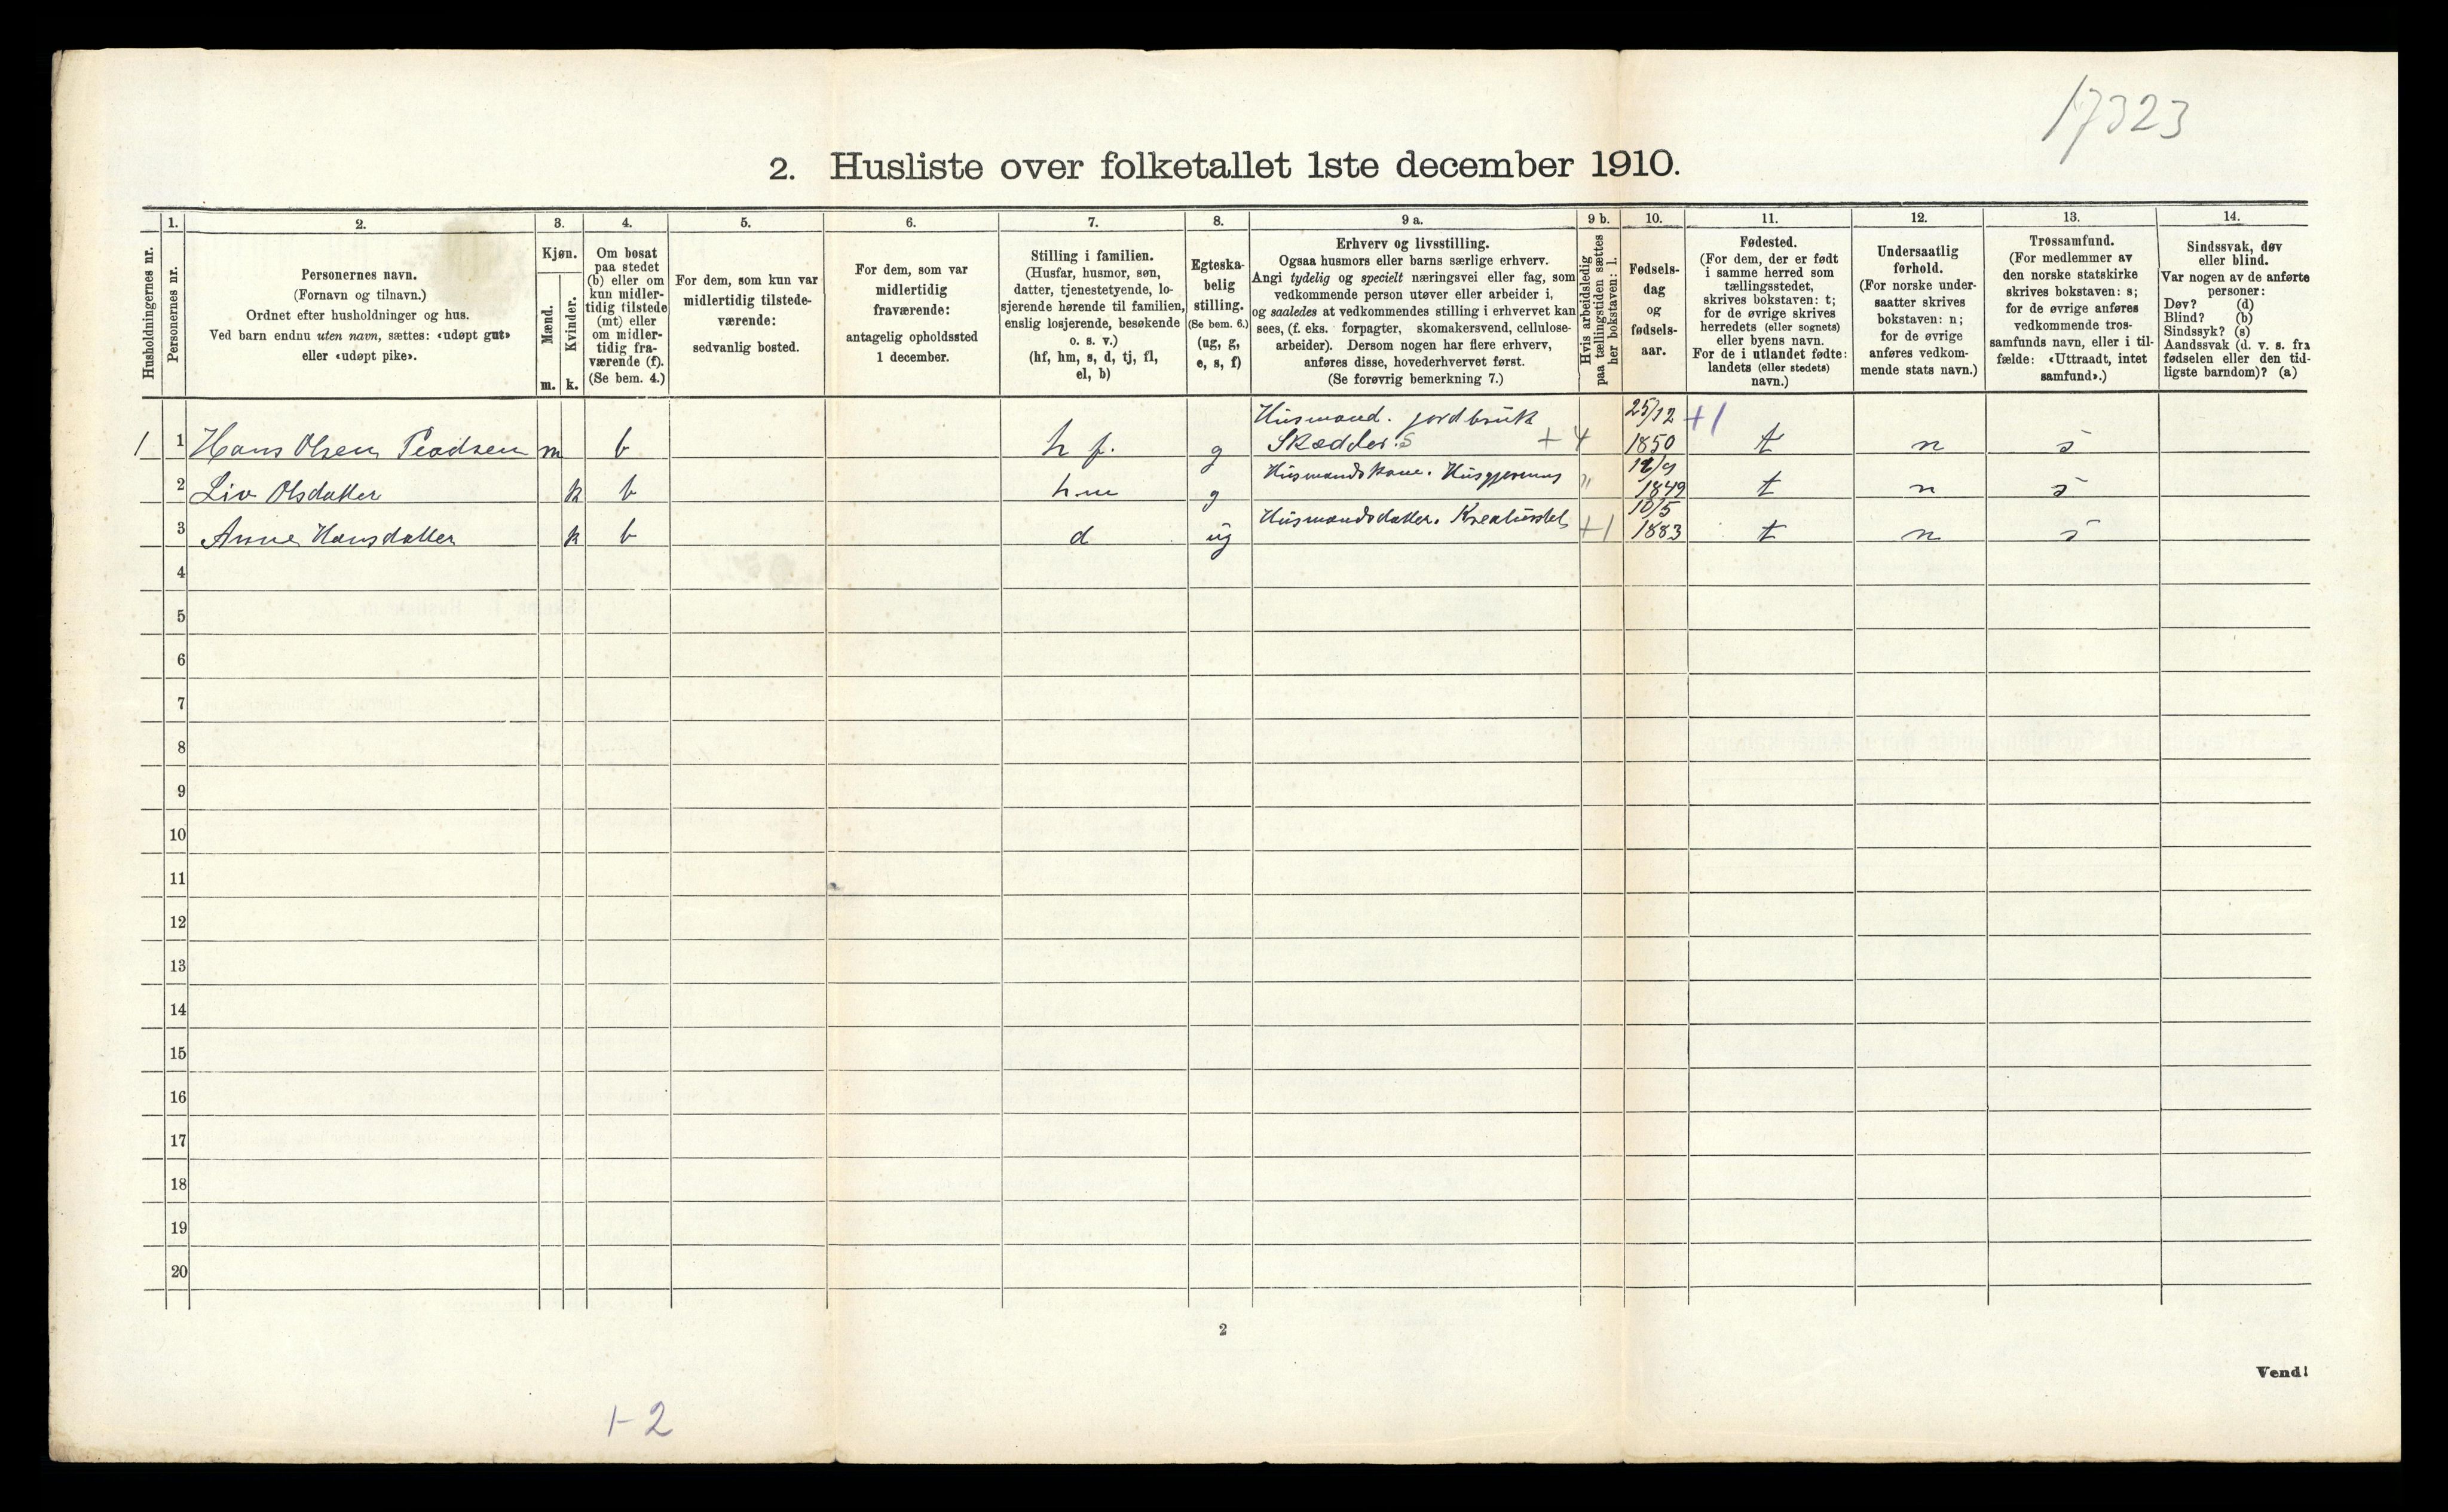 17323
2. Husliste over folketallet 1ste december 1910.
Husholdningernes nr.
1.
Personernes nr.
2.
Personernes navn.
(Fornavn og tilnavn.)
Ordnet efter husholdninger og hus.
Ved barn endnu uten navn, sættes: «udøpt gut»
eller «udøpt pike».
3.
Kjøn.
Mænd.
Kvinder.
m. k.
4.
Om bosat
paa stedet
(b) eller om
kun midler-
tidig tilstede
(mt) eller
om midler-
tidig fra-
værende (f).
(Se bem. 4.)
5.
For dem, som kun var
midlertidig tilstede-
værende:
sedvanlig bosted.
6.
For dem, som var
midlertidig
fraværende:
antagelig opholdssted
1 december.
7.
Stilling i familien.
(Husfar, husmor, søn,
datter, tjenestetyende, lo-
sjerende hørende til familien,
enslig losjerende, besøkende
o. s. v.)
(hf, hm, s, d, tj, fl,
el, b)
8.
Egteska-
belig
stilling.
(Se bem. 6.)
(ug, g,
e, s, f)
9 a.
Erhverv og livsstilling.
Ogsaa husmors eller barns særlige erhverv.
Angi tydelig og specielt næringsvei eller fag, som
vedkommende person utøver eller arbeider i,
og saaledes at vedkommendes stilling i erhvervet kan
sees, (f. eks. forpagter, skomakersvend, cellulose-
arbeider). Dersom nogen har flere erhverv,
anføres disse, hovederhvervet først.
(Se forøvrig bemerkning 7.)
9 b.
Hvis arbeidsledig
paa tællingstiden sættes
her bokstaven: l.
10.
Fødsels-
dag
og
fødsels-
aar.
11.
Fødested.
(For dem, der er født
i samme herred som
tællingsstedet,
skrives bokstaven: t;
for de øvrige skrives
herredets (eller sognets)
eller byens navn.
For de i utlandet fødte:
landets (eller stedets)
navn.)
12.
Undersaatlig
forhold.
(For norske under-
saatter skrives
bokstaven: n;
for de øvrige
anføres vedkom-
mende stats navn.)
13.
Trossamfund.
(For medlemmer av
den norske statskirke
skrives bokstaven: s;
for de øvrige anføres
vedkommende tros-
samfunds navn, eller i til-
fælde: «Uttraadt, intet
samfund».)
14.
Sindssvak, døv
eller blind.
Var nogen av de anførte
personer:
Døv? (d)
Blind? (b)
Sindssyk? (s)
Aandssvak (d. v. s. fra
fødselen eller den tid-
ligste barndom)? (a)
Husmand. jordbruk 25/12 +1
1 1 Hans Olsen m b h f. g Skædder. S +4 1850 t n s
Husmandskone.
2 Liv Olsdatter k b hm g 1849 t n s
Husmandsdatter. Kreaturstel 10/5
3 Anne Hansdatter k b d ug +1 1883 t n s
4
5
6
7
8
9
10
11
12
13
14
15
16
17
18
19
20
2
Vend!
1-2